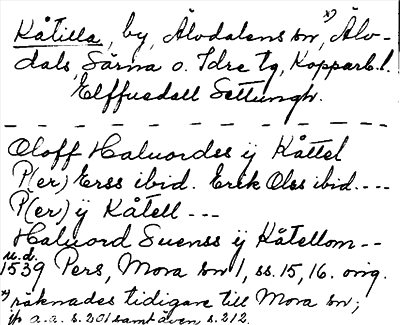 Kåtilla, by, Älvdalens sn,ˣ⁾ Älv-
dals, Särna o. Idre tg, Kopparb. l.
Elffuedall Settungh.
Oloff Haluordss ÿ Kåttel
P(er) Erss ibid. Erik Olss ibid. ---
P(er) ÿ Kåtell ---
Haluord Suenss ÿ Kåtellom --
u.d.
1539 Pers, Mora sn 1, ss. 15, 16. orig.
ˣ⁾ räknades tidigare till Mora sn;
jfr a.a. s. 201 samt även s. 212.